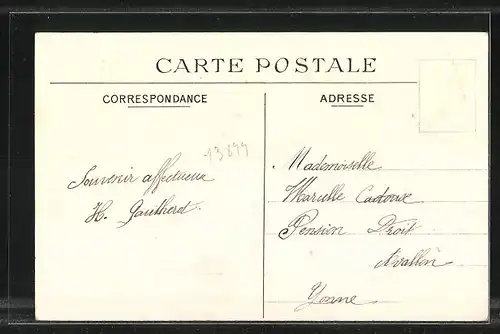 CARTE POSTALE
CORRESPONDANCE
ADRESSE
13899
Souvenir affectueux
H. Gautherot.
Mademoiselle
Marcelle Cadoux
Pension Droit
Avallon
Yonne